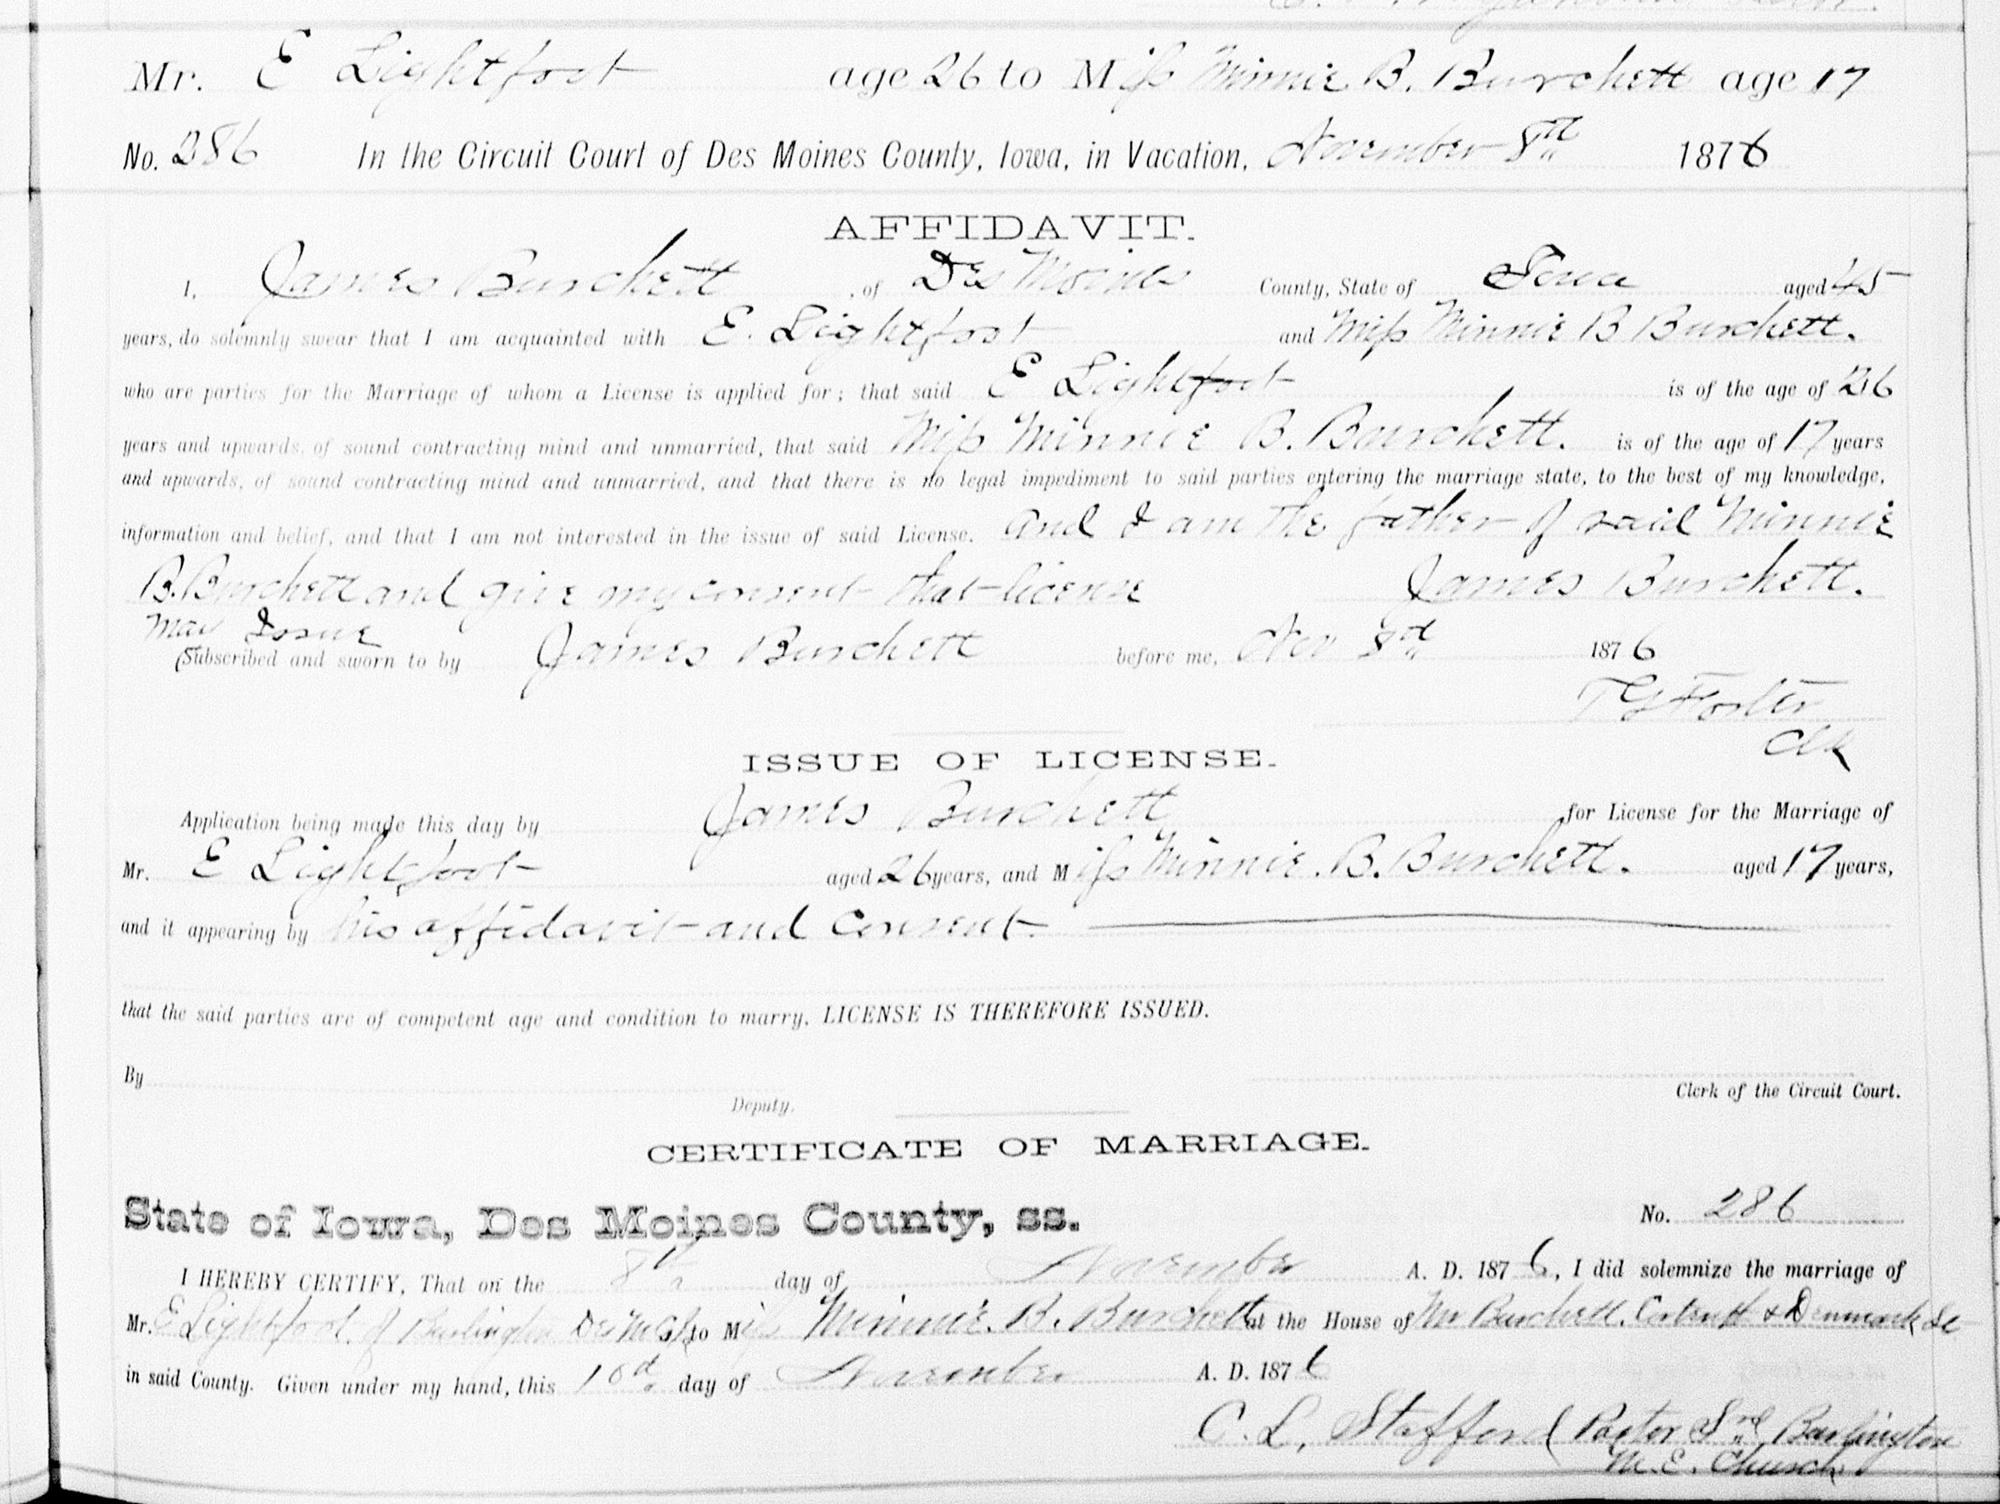 Mr. E Lightfoot age 26 to Miss Minnie B. Burchett age 17
No. 286 In the Circuit Court of Des Moines County, Iowa, in Vacation, November 8th 1876
AFFIDAVIT.
I, James Burchett, of Des Moines County, State of Iowa aged 45
years, do solemnly swear that I am acquainted with E. Lightfoot and Miss Minnie B Burchett.
who are parties for the Marriage of whom a License is applied for; that said E Lightfoot is of the age of 26
years and upwards, of sound contracting mind and unmarried, that said Miss Minnie B. Burchett. is of the age of 17 years
and upwards, of sound contracting mind and unmarried, and that there is no legal impediment to said parties entering the marriage state, to the best of my knowledge,
information and belief, and that I am not interested in the issue of said License. and I am the father of said Minnie
B. Burchett and give my consent that license James Burchett.
may Issue
Subscribed and sworn to by James Burchett before me, Nov 8th 1876
T G Foster
Clk
ISSUE OF LICENSE.
Application being made this day by James Burchett for License for the Marriage of
Mr. E Lightfoot aged 26 years, and Miss Minnie. B. Burchett. aged 17 years,
and it appearing by his affidavit and consent.
that the said parties are of competent age and condition to marry, LICENSE IS THEREFORE ISSUED.
By
Clerk of the Circuit Court.
Deputy.
CERTIFICATE OF MARRIAGE.
State of Iowa, Des Moines County, ss. No. 286
I HEREBY CERTIFY, That on the 8th day of November A. D. 1876, I did solemnize the marriage of
Mr. E Lightfoot of Burlington to Miss Minnie. B. Burchett at the House of Mr Burchett. & Denmark
in said County. Given under my hand, this 10d. day of November A. D. 1876
C. L. Stafford Pastor Burlington
M. E. Church